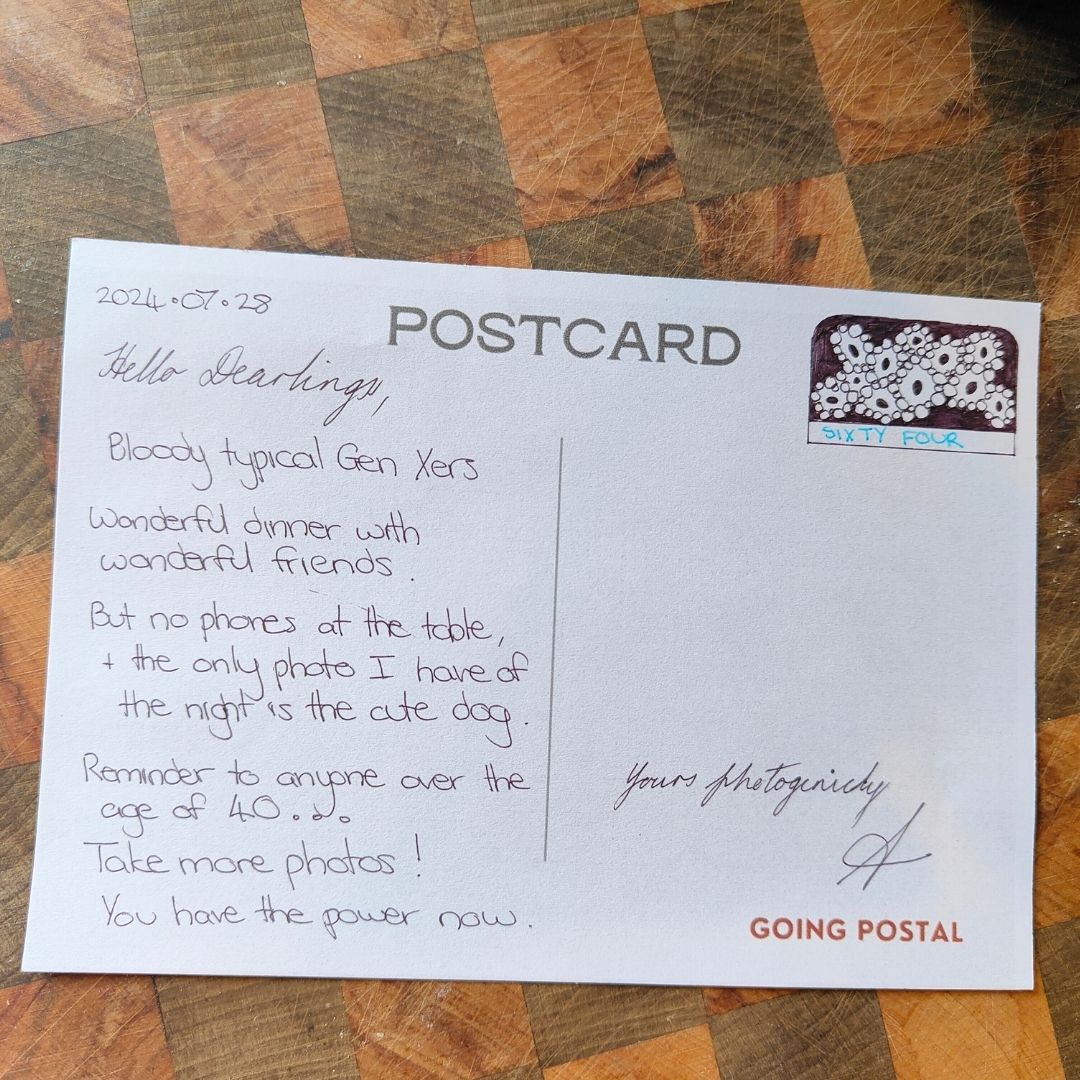 2024.07.28
POSTCARD
SIXTY FOUR
Hello Dearlings,
Bloody typical Gen Xers
Wonderful dinner with
wonderful friends.
But no phones at the table,
+ the only photo I have of
the night is the cute dog.
Reminder to anyone over the
age of 40...
Take more photos!
You have the power now.
Yours photogenicly
A
GOING POSTAL